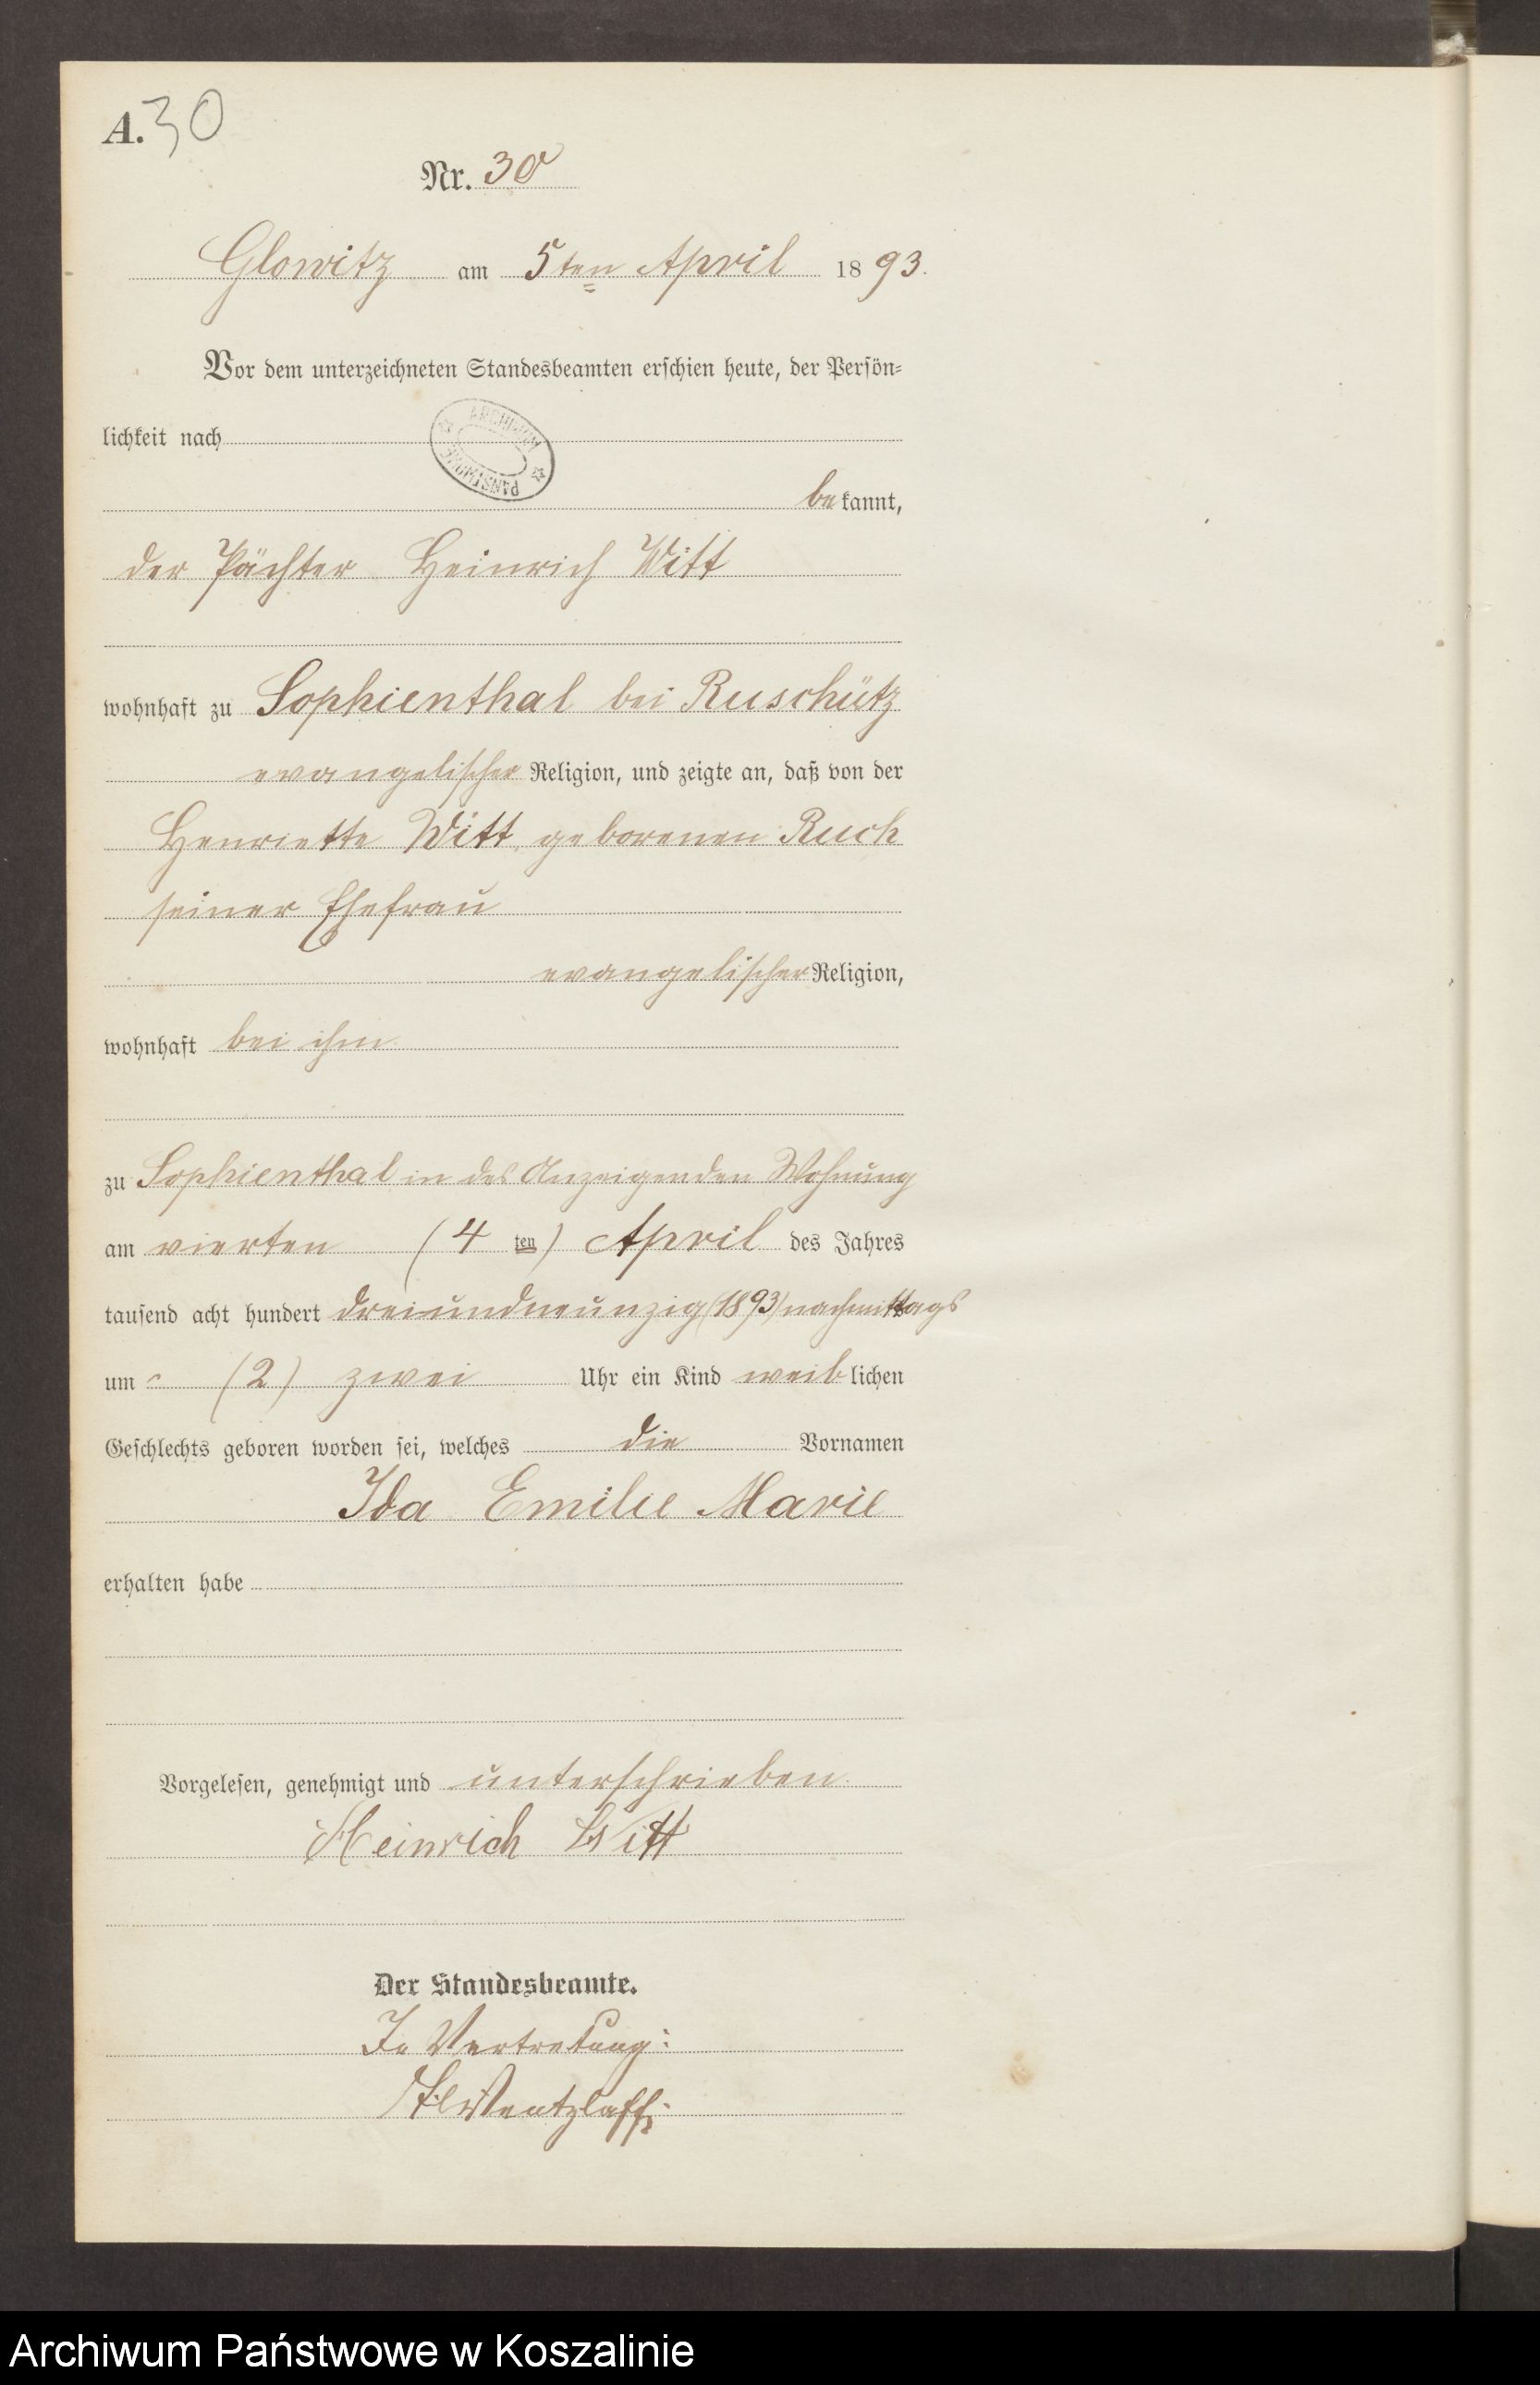 A. 30
Nr. 30
Glowitz am 5ten April 1893.
Vor dem unterzeichneten Standesbeamten erschien heute, der Persön-
lichkeit nach
ARCHIWUM PAŃSTWOWE
bekannt,
der Pächter Heinrich Witt
wohnhaft zu Sophienthal bei Ruschütz
evangelischer Religion, und zeigte an, daß von der
Henriette Witt geborenen Ruch
seiner Ehefrau
evangelischer Religion,
wohnhaft bei ihm
zu Sophienthal in des Anzeigenden Wohnung
am vierten (4 ten) April des Jahres
tausend acht hundert dreiundneunzig (1893) nachmittags
um (2) zwei Uhr ein Kind weiblichen
Geschlechts geboren worden sei, welches die Vornamen
Ida Emilie Marie
erhalten habe
Vorgelesen, genehmigt und unterschrieben.
Heinrich Witt
Der Standesbeamte.
In Vertretung:
Wentzlaff
Archiwum Państwowe w Koszalinie